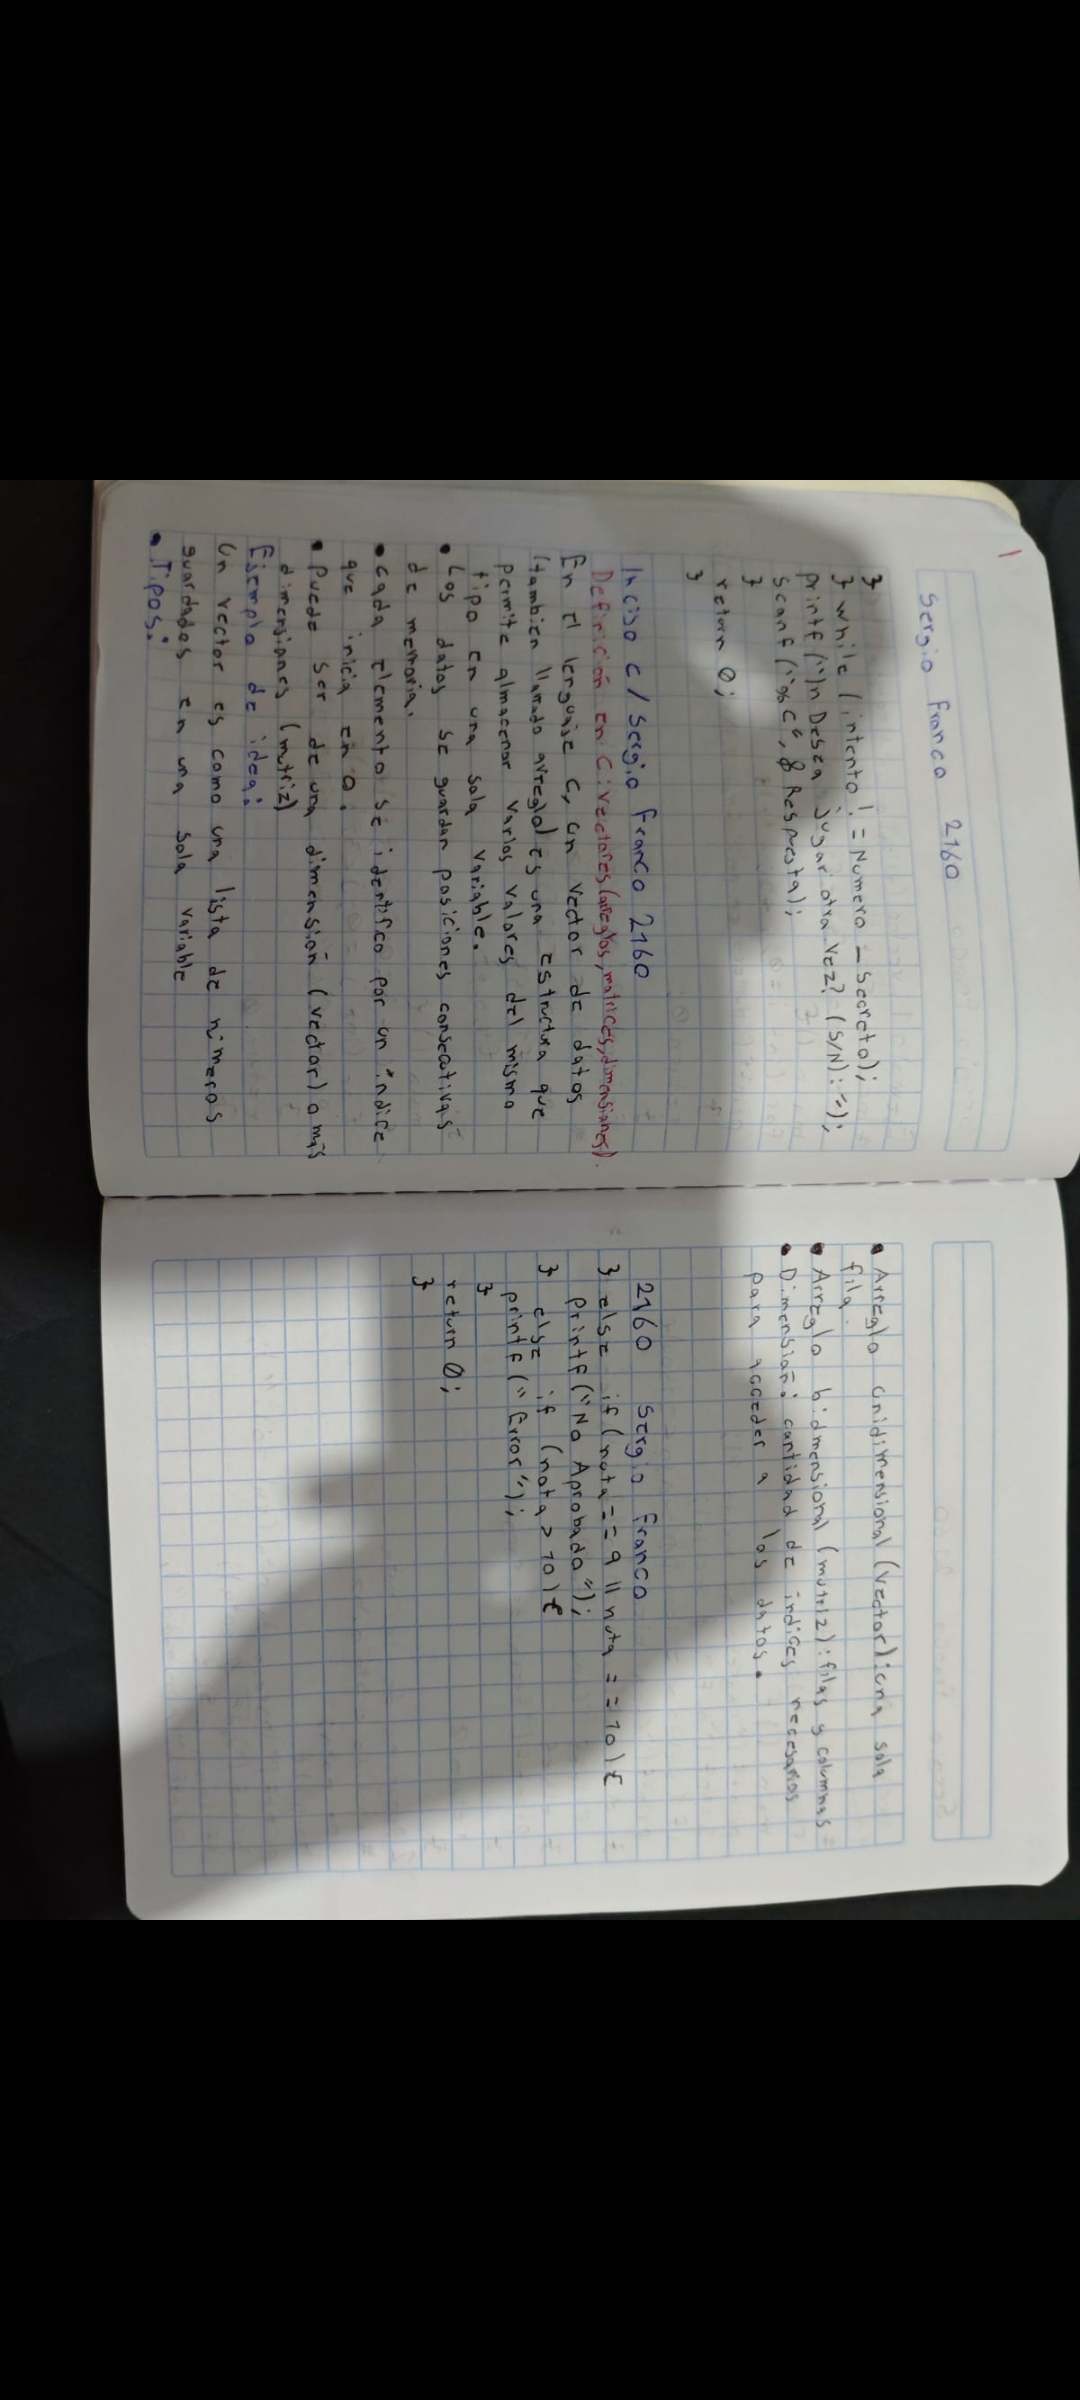 1
Sergio Franco 2160
}
} while (intento != Numero - Secreto);
printf ("\n Desea jugar otra vez? (S/N): ");
scanf ("%c", & Respuesta);
}
return 0;
}
Inciso c / Sergio Franco 2160
Definición en C: vectores (arreglos, matrices, dimensiones).
En el lenguaje C, un vector de datos
(tambien llamado arreglo) es una estructura que
permite almacenar varios valores del mismo
tipo en una sola variable.
• Los datos se guardan posiciones consecutivas
de memoria.
• cada elemento se identifico por un índice
que inicia en 0.
• puede ser de una dimensión (vector) o más
dimensiones (matriz)
Ejemplo de idea:
Un vector es como una lista de números
guardados en una sola variable
• Tipos:
• Arreglo unidimensional (vector): una sola
fila.
• Arreglo bidmensional (matriz): filas y columnas
• Dimensión: cantidad de indices necesarios
para acceder a los datos.
2160 Sergio Franco
} else if (nota == 9 || nota == 10) {
printf ("No Aprobado");
} else if (nota > 10) {
printf ("Error");
}
return 0;
}